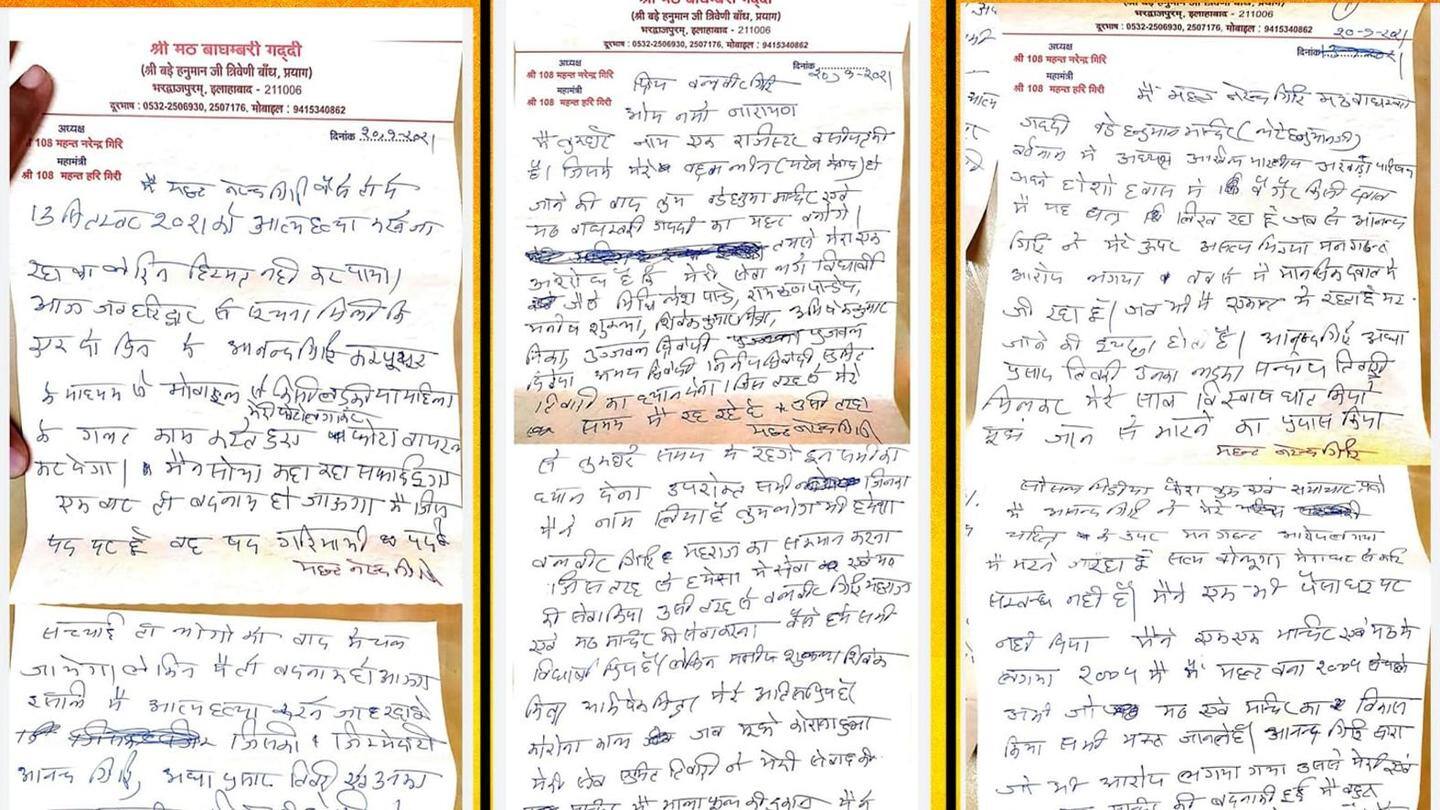 श्री मठ बाघम्बरी गद्दी
(श्री बड़े हनुमान जी त्रिवेणी बाँध, प्रयाग)
भरद्वाजपुरम्, इलाहाबाद - 211006
दूरभाष : 0532-2506930, 2507176, मोबाइल : 9415340862
अध्यक्ष
श्री 108 महन्त नरेन्द्र गिरि
महामंत्री
श्री 108 महन्त हरि गिरी
दिनांक
मै महन्त नरेन्द्र गिरि
13 सितम्बर २०२१ को आत्म हत्या करने जा
रहा था लेकिन हिम्मत नही कर पाया।
आज जब हरिद्वार से सूचना मिली कि
एक दो दिन में आनन्द गिरि कम्प्यूटर
के माध्यम से मोबाइल से किसी लड़की या महिला
मेरी फोटो लगाकर
के गलत काम करते हुए फोटो वायरल
कर देगा। मैने सोचा कहा सफाई दूंगा
एक बार तो बदनाम हो जाऊगा मै जिस
पद पर हूँ वह पद गरिमामयी पद है
महन्त नरेन्द्र गिरि
सच्चाई तो लोगो को बाद में चल
जायेगा लेकिन मै तो बदनाम हो जाऊगा
इसलिए मै आत्महत्या करने जा रहा हूँ
जिसकी जिम्मेदारी
आनन्द गिरि, अद्या प्रसाद तिवारी एवं उनका
(श्री बड़े हनुमान जी त्रिवेणी बाँध, प्रयाग)
भरद्वाजपुरम्, इलाहाबाद - 211006
दूरभाष : 0532-2506930, 2507176, मोबाइल : 9415340862
अध्यक्ष
श्री 108 महन्त नरेन्द्र गिरि
महामंत्री
श्री 108 महन्त हरि गिरी
दिनांक
प्रिय बलवीर गिरि
ओम नमो नारायण
मै तुम्हारे नाम एक रजिस्टर वसीयत की
है। जिसमे मेरे ब्रह्मलीन (मरने के बाद) हो
जाने के बाद तुम बड़े हनुमान मन्दिर एवं
मठ बाघम्बरी गद्दी का महन्त बनोगे।
तुमसे मेरा एक
अनुरोध है कि मेरी सेवा में लगे विद्यार्थी
जैसे मिथिलेश पाण्डे, रामकृष्ण पाण्डेय,
मनीष शुक्ला, शिवेक कुमार मिश्रा, अभिषेक कुमार
मिश्रा, उज्जवल द्विवेदी
अभय द्विवेदी निर्भय द्विवेदी सुमित
तिवारी का ध्यान देना। जिस तरह से मेरे
समय में रह रहे है उसी तरह
महन्त नरेन्द्र गिरि
से तुम्हारे समय में रहेगे इन सभी का
ध्यान देना उपरोक्त सभी जिनका
मैने नाम लिया है तुम लोग भी हमेशा
बलवीर गिरि महराज का सम्मान करना
जिस तरह से हमेशा मेरी सेवा एवं मठ
की सेवा किया उसी तरह से बलवीर गिरि महराज
एवं मठ मन्दिर की सेवा करना वैसे हमे सभी
विद्यार्थी प्रिय है। लेकिन मनीष शुक्ला शिवेक
मिश्रा अभिषेक मिश्रा मेरे अति प्रिय है
कोरोना काल जब मुझे कोरोना हुआ
मेरी सेवा सुमित तिवारी ने मेरी सेवा की
भरद्वाजपुरम्, इलाहाबाद - 211006
दूरभाष : 0532-2506930, 2507176, मोबाइल : 9415340862
अध्यक्ष
श्री 108 महन्त नरेन्द्र गिरि
महामंत्री
श्री 108 महन्त हरि गिरी
दिनांक
मै महन्त नरेन्द्र गिरि मठ बाघम्बरी
गद्दी बड़े हनुमान मन्दिर (लेटे हनुमानजी)
वर्तमान में अध्यक्ष अखिल भारतीय अखाड़ा परिषद
अपने होशो हवास में बगैर किसी दबाव
मै यह पत्र लिख रहा हूँ जब से आनन्द
गिरि ने मेरे ऊपर असत्य मिथ्या मनगढन्त
आरोप लगाया तब से मै मानसिक दबाव में
जी रहा हूँ। जब भी मै एकान्त में रहता हूँ मर
जाने की इच्छा होती है। आनन्द गिरि अद्या
प्रसाद तिवारी उनका लड़का सन्दीप तिवारी
मिलकर मेरे साथ विश्वासघात किया
मुझे जान से मारने का प्रयास किया
महन्त नरेन्द्र गिरि
सोसल मिडीया फेस बुक एवं समाचार पत्रो
मै आनन्द गिरि ने मेरे
चरित्र के ऊपर मनगढन्त आरोप लगाया
मै मरने जा रहा हूँ सत्य बोलूगा मेरा घर से कोई
सम्बन्ध नहीं है। मैने एक भी पैसा घर पर
नही दिया मैने एक एक मन्दिर एवं मठ मे
लगाया २००४ मै मै महन्त बना २००४ से पहले
अभी जो मठ एवं मन्दिर का विकास
किया सभी भक्त जानते है। आनन्द गिरि द्वारा
जो भी आरोप लगाया गया उससे मेरी एवं
मठ मन्दिर की बदनामी हुई मै बहुत